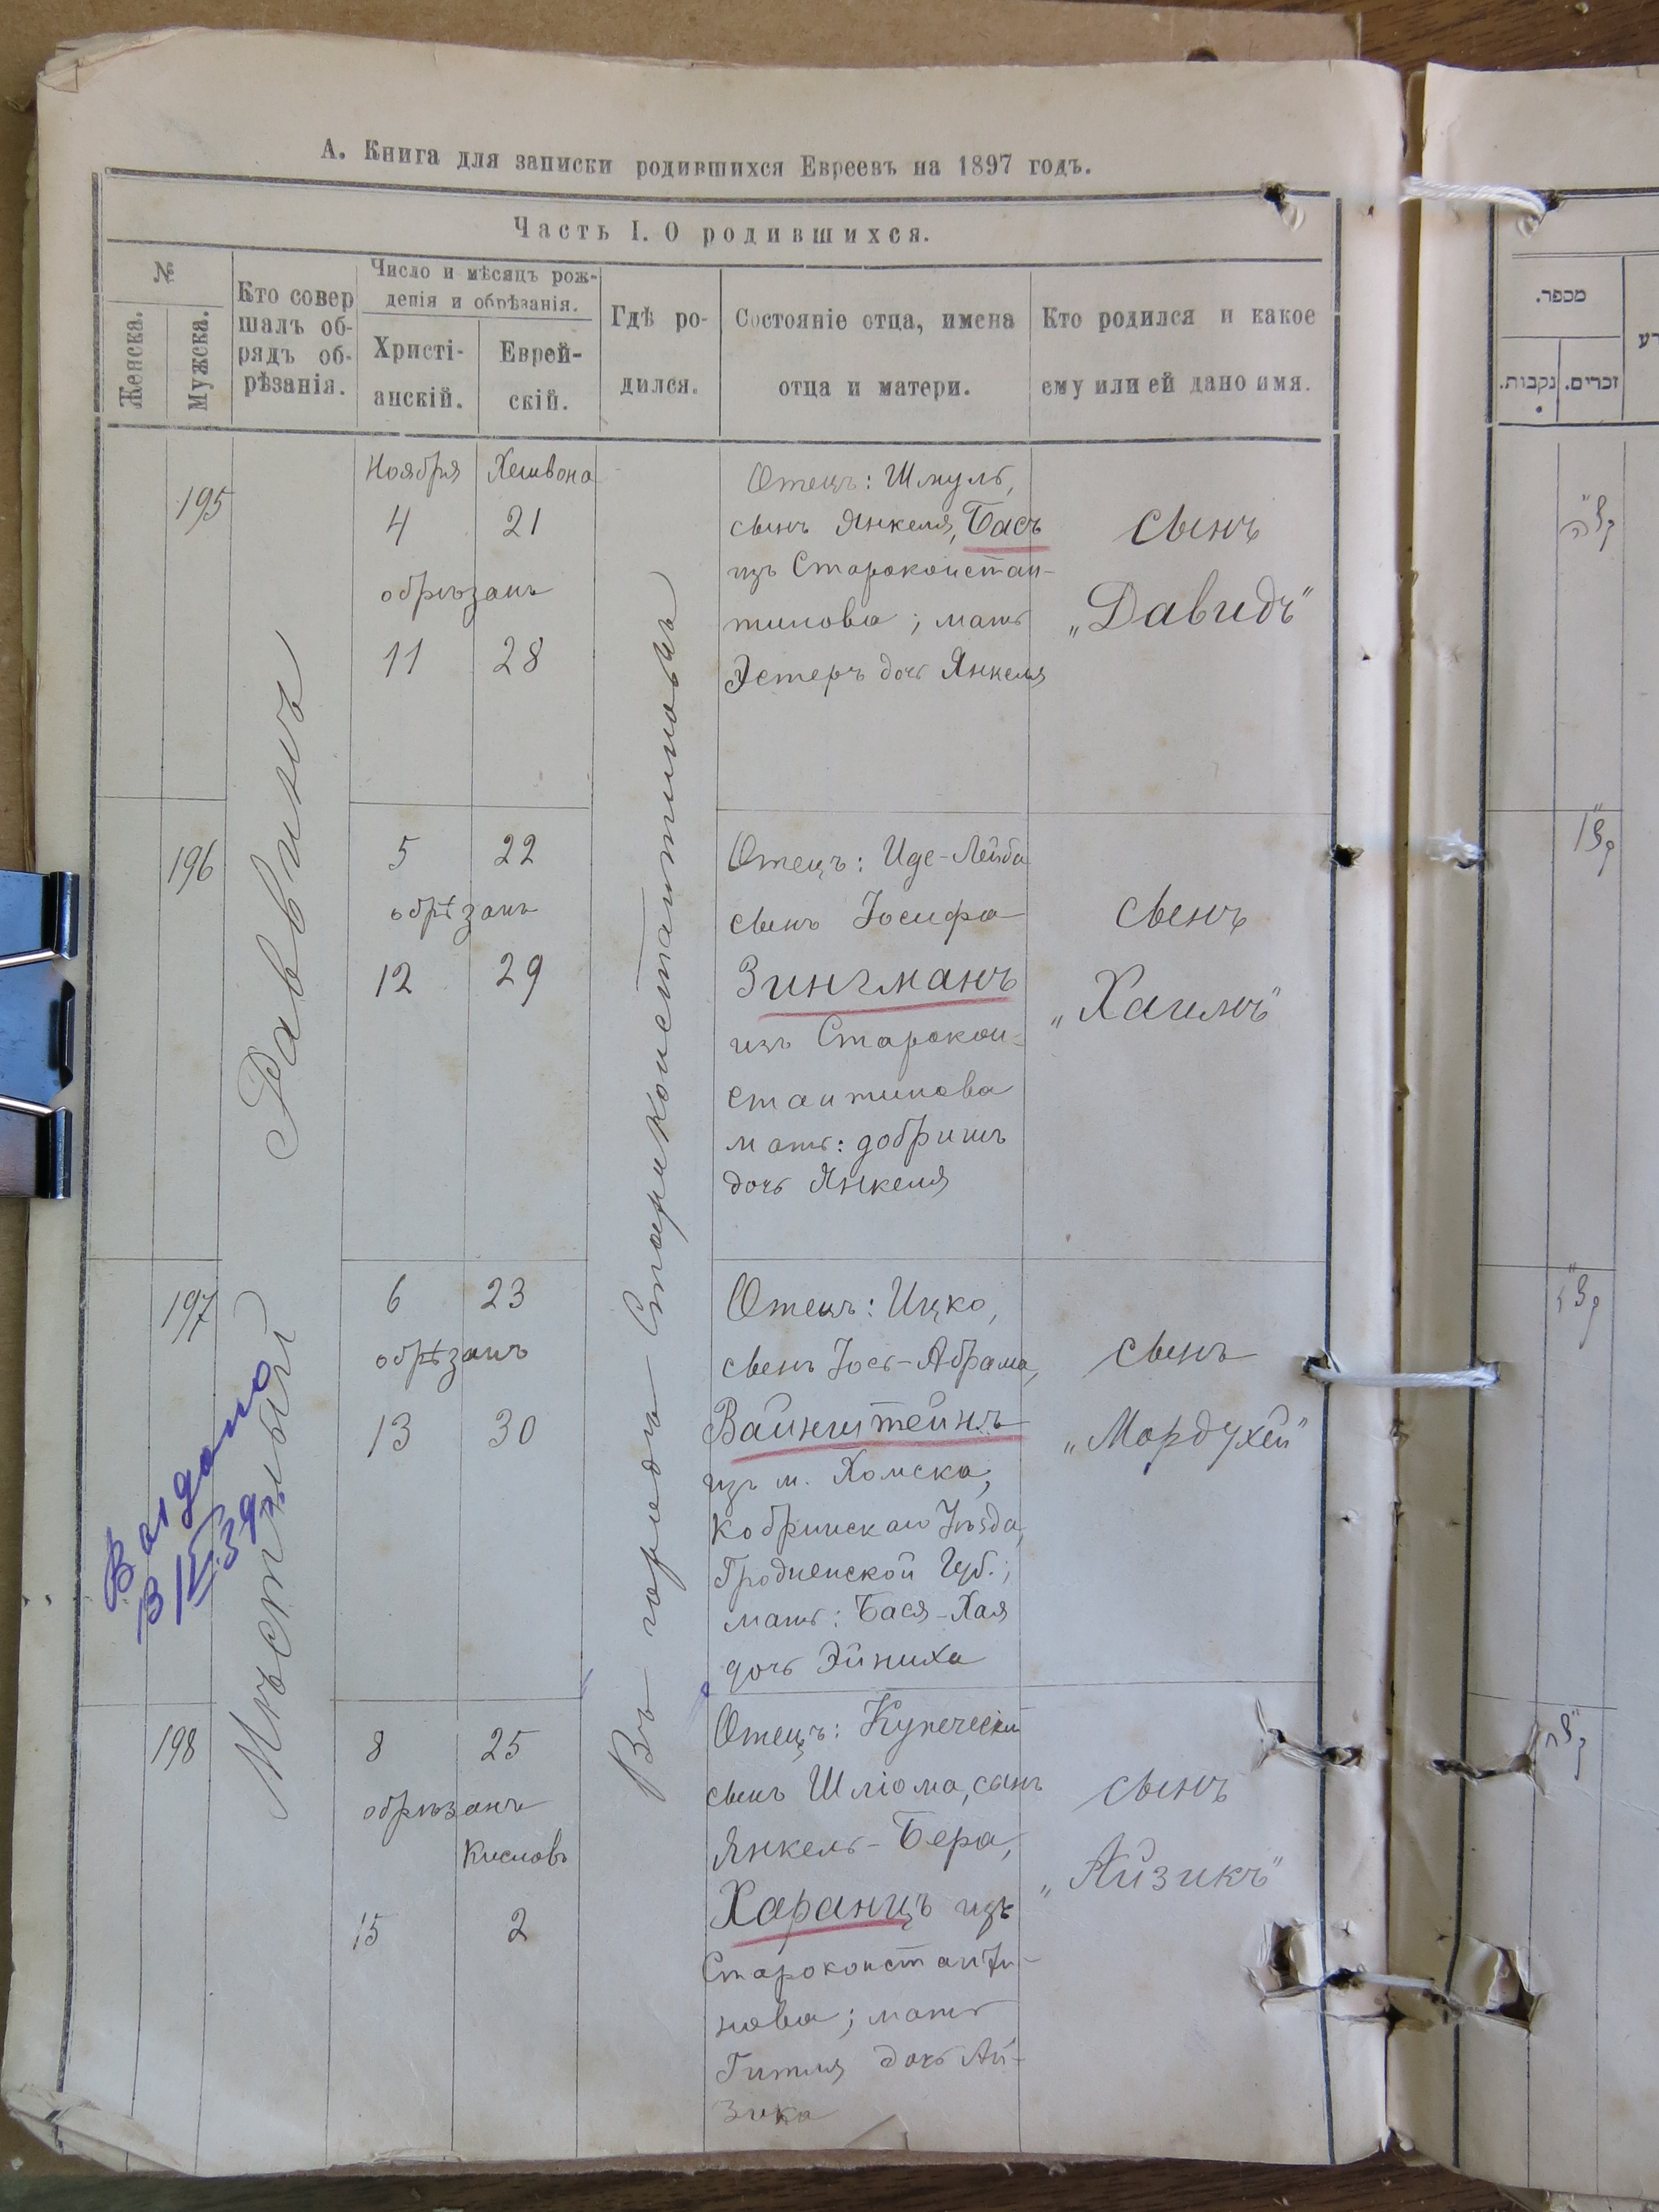 А. Книга для записки родившихся Евреевъ на 1897 годъ.
Часть I. О родившихся.
№
Женска.
Мужска.
Кто совер
шалъ об-
рядъ об-
рѣзанія.
Число и мѣсяцъ рож-
денія и обрѣзанія.
Христі-
анскій.
Еврей-
скій.
Гдѣ ро-
дился.
Состояніе отца, имена
отца и матери.
Кто родился и какое
ему или ей дано имя.
Мѣстный Раввинъ
Въ городѣ Староконстантиновѣ
195
Ноября Хешвона
4 21
обрѣзанъ
11 28
Отецъ: Шмуль,
сынъ Янкеля, Басъ
изъ Староконстан-
тинова; мать
Эстеръ дочь Янкеля
сынъ
„Давидъ"
196
5 22
обрѣзанъ
12 29
Отецъ: Иде-Лейба
сынъ Іосифа
Зингманъ
изъ Старокон-
стантинова
мать: Добришъ
дочь Янкеля
сынъ
„Хаимъ"
197
6 23
обрѣзанъ
13 30
Отецъ: Ицко,
сынъ Іось-Абрама,
Вайнштейнъ
изъ м. Хомска,
Кобринскаго Уѣзда,
Гродненской Губ.;
мать: Бася-Хая
дочь Эйниха
сынъ
„Мордухей"
Выдано
13/IV 39 г.
198
8 25
обрѣзанъ
Кислевъ
15 2
Отецъ: Купеческій
сынъ Шліома, сынъ
Янкель-Бера,
Харанцъ изъ
Староконстанти-
нова; мать
Гитля дочь Ай-
зика
сынъ
„Айзикъ"
מספר.
זכרים.
נקבות.
קצ״ה
קצ״ו
קצ״ז
קצ״ח